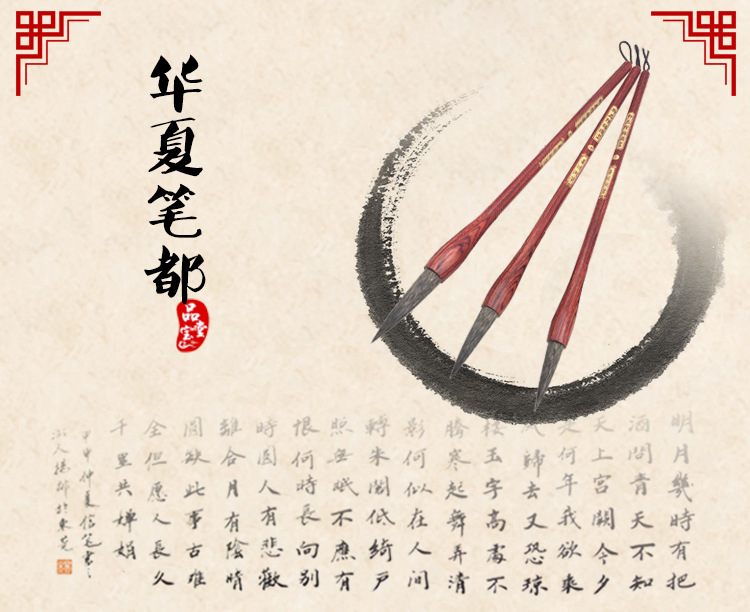 华夏笔都
明月幾時有把
酒問青天不知
天上宮闕今夕
是何年我欲乘
歸去又恐瓊
樓玉宇高處不
勝寒起舞弄清
影何似在人間
轉朱閣低綺戶
照無眠不應有
恨何時長向別
時圓人有悲歡
離合月有陰晴
圓缺此事古難
全但愿人長久
千里共嬋娟
甲申仲夏信笔書之